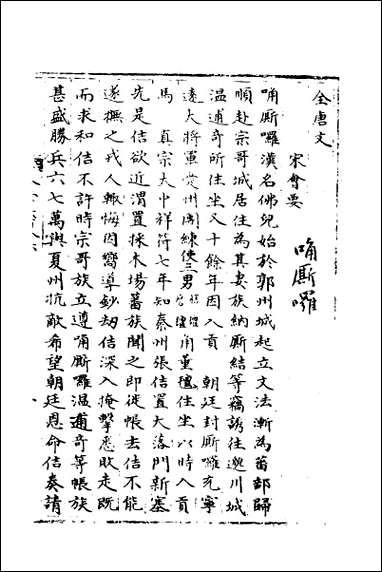 全唐文
宋會要
唃厮囉
唃厮囉漢名佛兒始於郭州城起立文法漸為蕃部歸
順赴宗哥城居住為其妻族納厮結等竊誘往邈川城
温逋奇所住坐又十餘年因入貢 朝廷封厮囉充寧
遠大將軍愛州團練使三男 角董氊住坐以時入貢
馬 真宗大中祥符七年知秦州張佶置大落門新塞
先是佶欲近渭置採木場蕃族聞之即徙帳去佶不能
遂撫之戎人輙悔因嚮導鈔劫佶深入掩擊悉敗走既
而求和佶不許時宗哥族立遵唃厮囉温逋奇等帳族
甚盛勝兵六七萬與夏州抗敵希望朝廷恩命佶奏請